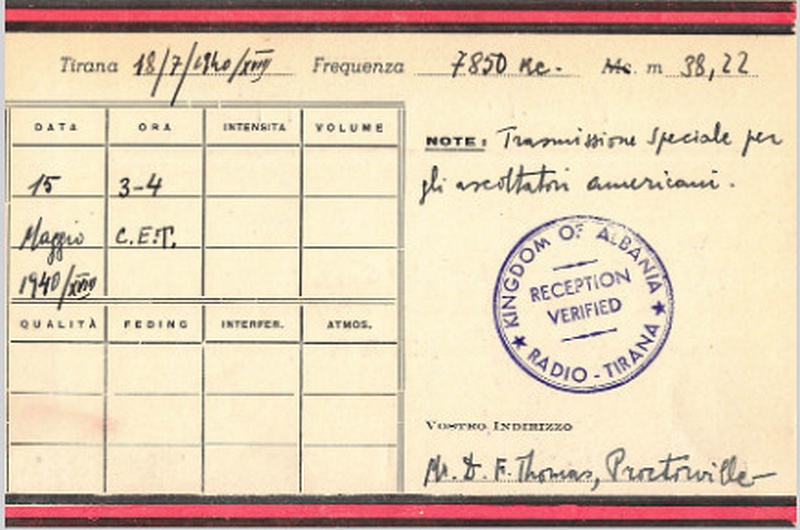 Tirana 18/7/1940/XVIII Frequenza 7850 Kc. - Mc. m 38,22
DATA ORA INTENSITA VOLUME
15 3-4
Maggio C.E.T.
1940/XVIII
QUALITÀ FEDING INTERFER. ATMOS.
NOTE: Trasmissione speciale per
gli ascoltatori americani.
KINGDOM OF ALBANIA
RECEPTION
VERIFIED
RADIO-TIRANA
VOSTRO INDIRIZZO
Mr. D. F. Thomas, Proctorville